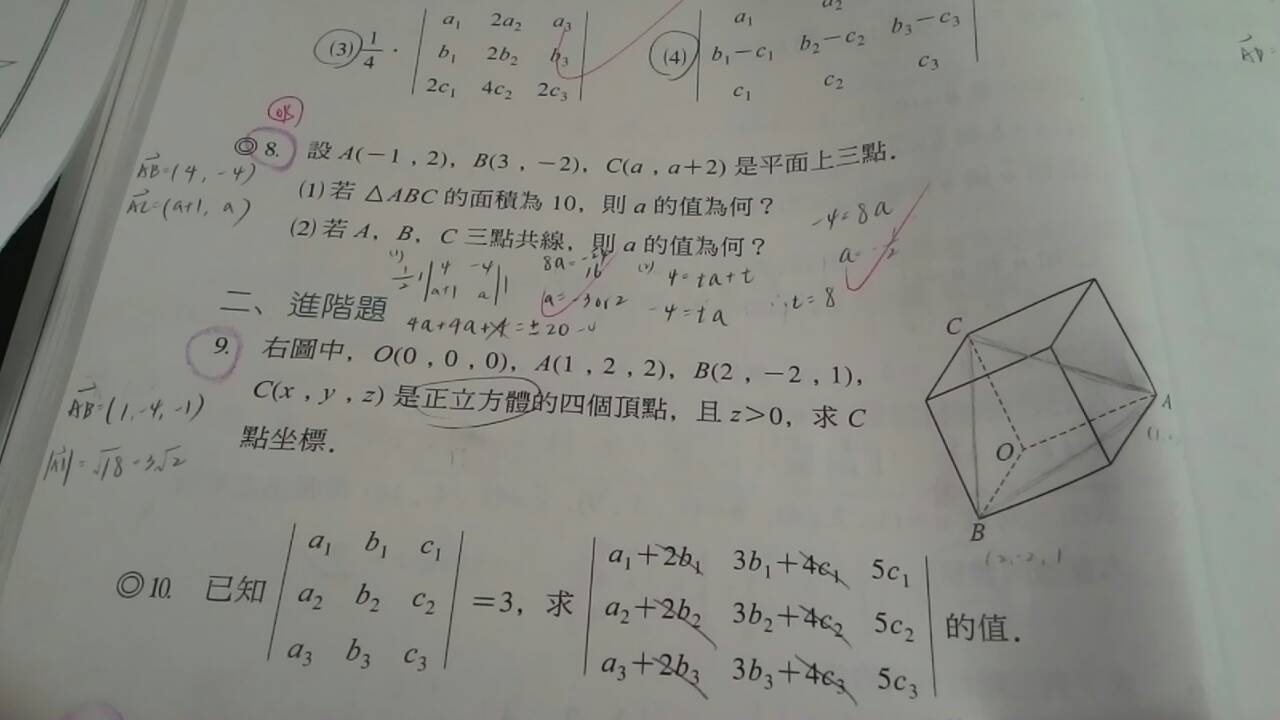 (3) 1/4 · | a₁ 2a₂ a₃ |
| b₁ 2b₂ b₃ |
| 2c₁ 4c₂ 2c₃ |
(4) | a₁ a₂ |
| b₁−c₁ b₂−c₂ b₃−c₃ |
| c₁ c₂ c₃ |
AD=
OK
◎ 8. 設 A(−1 , 2), B(3 , −2), C(a , a+2) 是平面上三點.
AB=(4, -4)
AC=(a+1, a)
(1) 若 △ABC 的面積為 10, 則 a 的值為何?
(2) 若 A, B, C 三點共線, 則 a 的值為何?
(1) 1/2 | | 4 -4 |
| a+1 a | |
4a+4a+4=±20
8a=
16
a=-3or2
(2) 4=ta+t
-4=ta
∴t=8
-4=8a
a=-1/2
二、進階題
9. 右圖中, O(0 , 0 , 0), A(1 , 2 , 2), B(2 , −2 , 1),
C(x , y , z) 是正立方體的四個頂點, 且 z>0, 求 C
點坐標.
AB=(1,-4,-1)
=√18=3√2
C
A
(1,
O
B
(2,-2,1
◎ 10. 已知 | a₁ b₁ c₁ |
| a₂ b₂ c₂ |
| a₃ b₃ c₃ |
=3, 求 | a₁+2b₁ 3b₁+4c₁ 5c₁ |
| a₂+2b₂ 3b₂+4c₂ 5c₂ |
| a₃+2b₃ 3b₃+4c₃ 5c₃ |
的值.